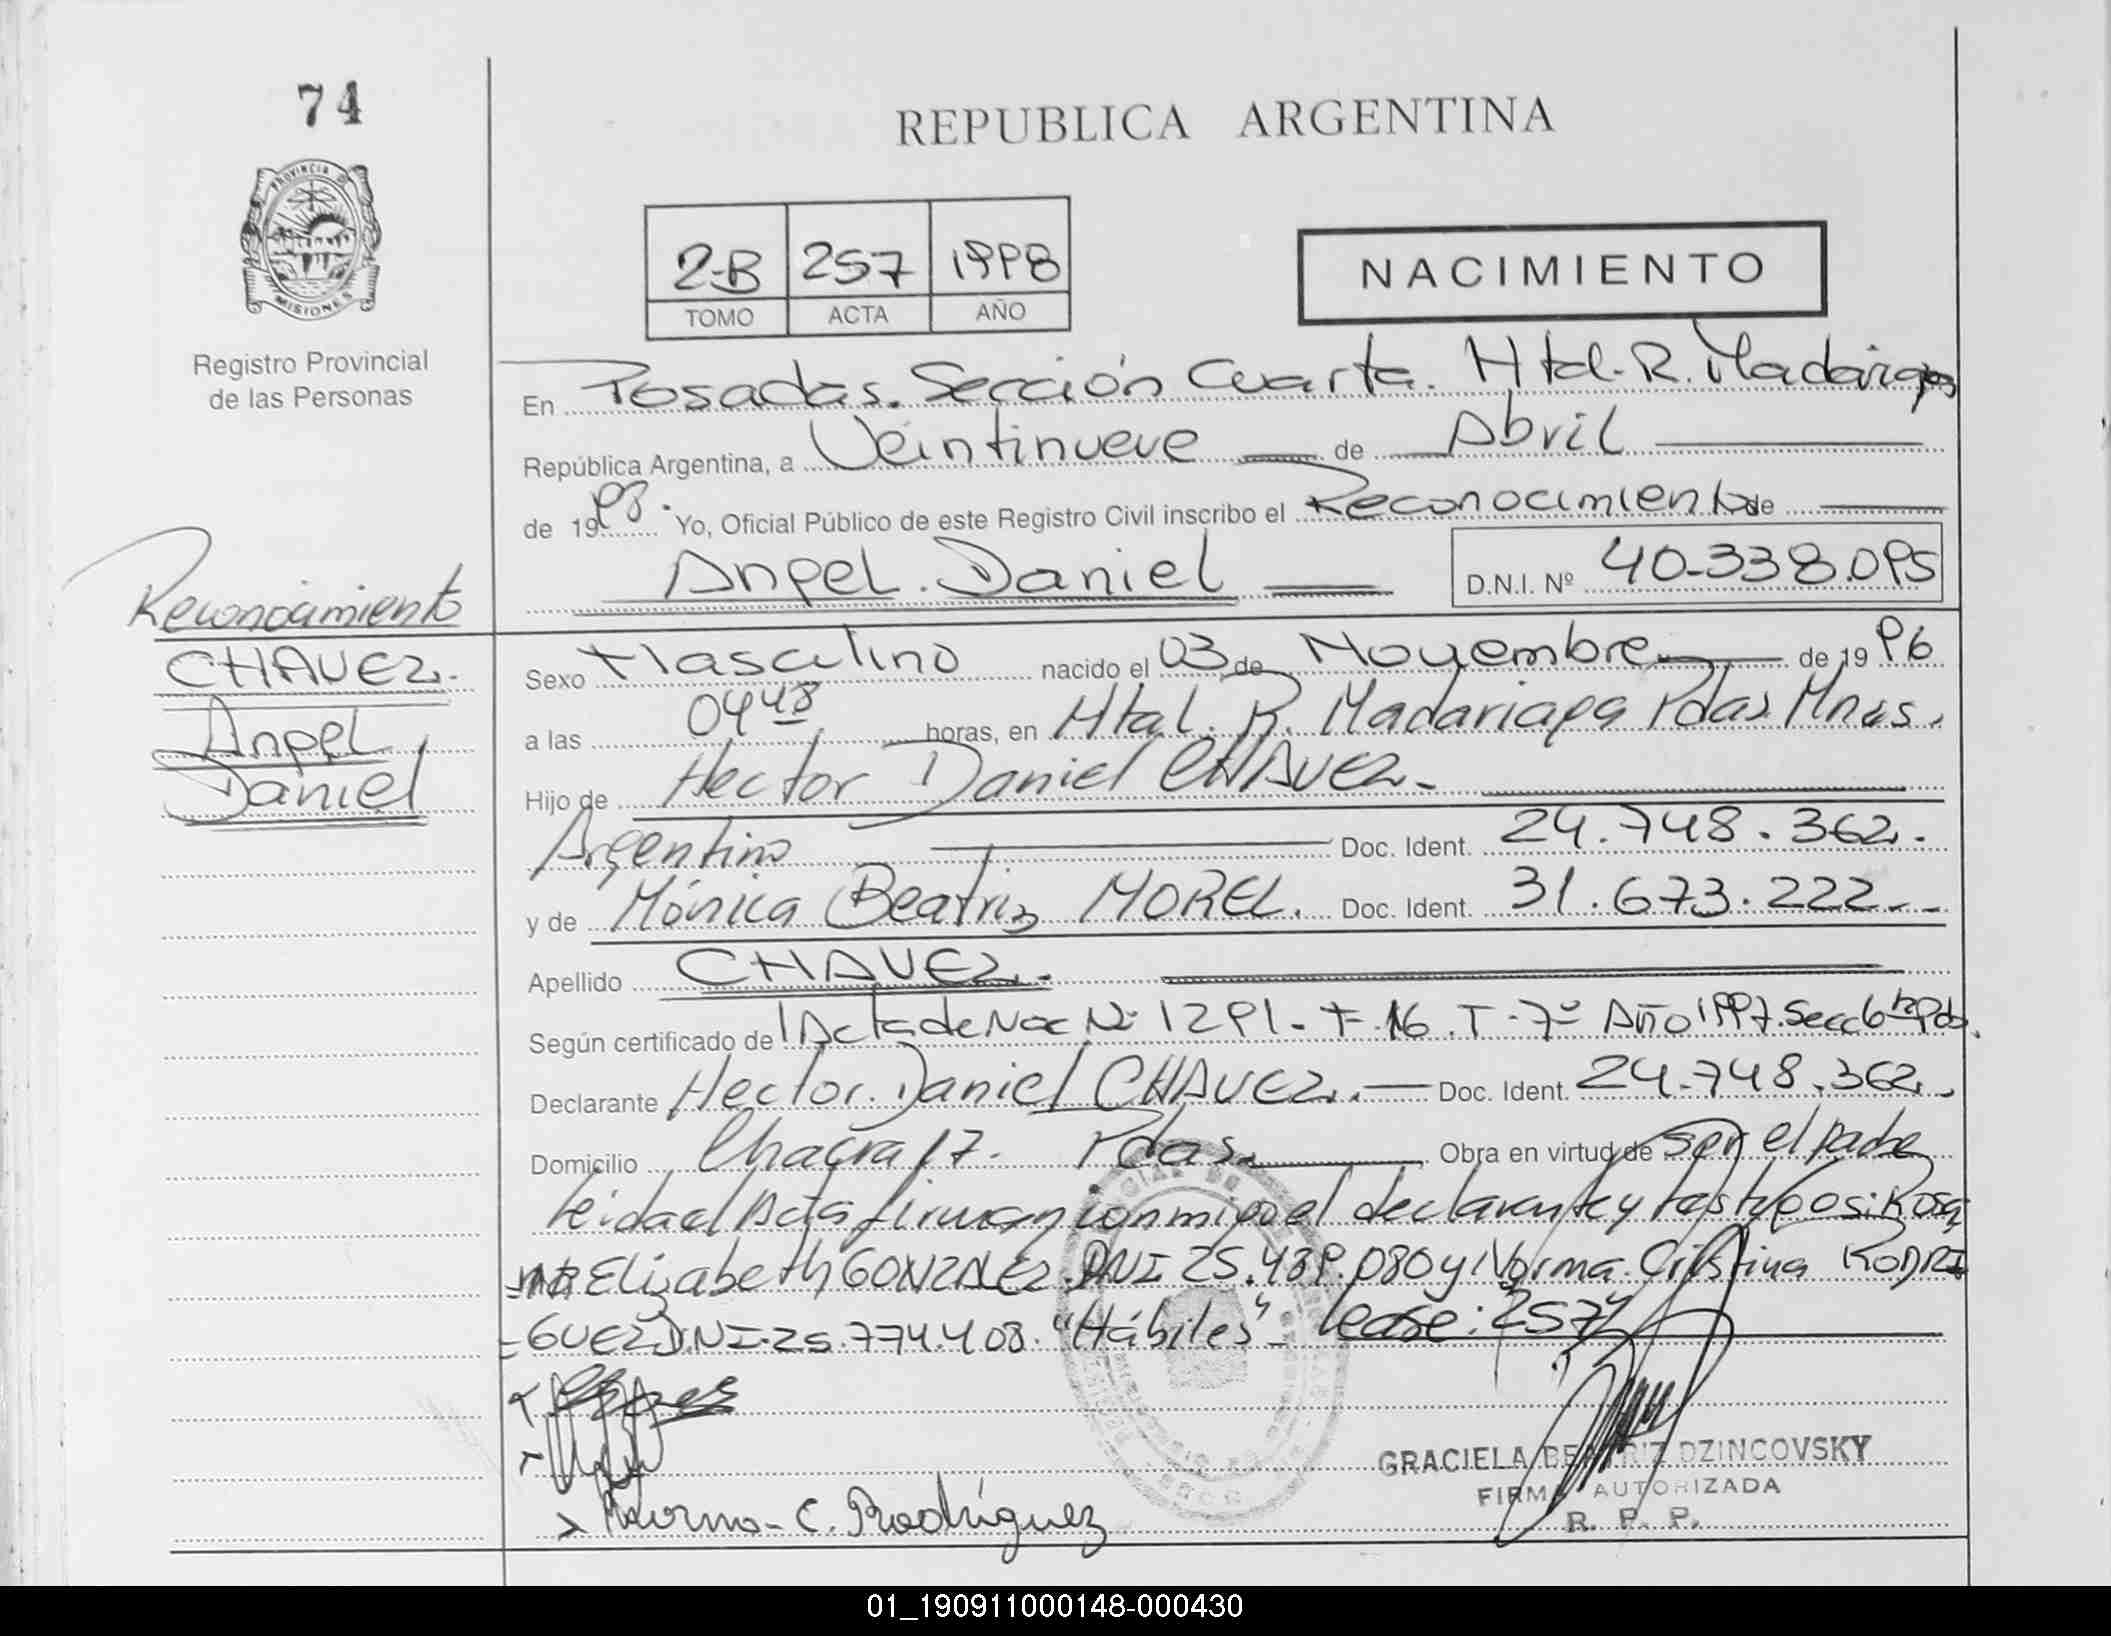 74
REPUBLICA ARGENTINA
PROVINCIA D
MISIONES
2-B 257 1998
TOMO ACTA AÑO
NACIMIENTO
Registro Provincial
de las Personas
En Posadas. Sección Cuarta. Htal. R. Madariaga
República Argentina, a Veintinueve de Abril
de 1998. Yo, Oficial Público de este Registro Civil inscribo el Reconocimiento de
Angel. Daniel D.N.I. Nº 40.338.095
Reconocimiento
CHAVEZ.
Angel
Daniel
Sexo Masculino nacido el 03 de Noviembre de 1996
a las 0448 horas, en Htal. R. Madariaga Pdas Mnes.
Hijo de Hector Daniel CHAVEZ.
Argentino Doc. Ident. 24.748.362.
y de Mónica Beatriz MOREL. Doc. Ident. 31.673.222
Apellido CHAVEZ.
Según certificado de Acta de Nac Nº 1291. F. 16. T. 7º Año 1997. Secc 6ta Pdas.
Declarante Hector. Daniel CHAVEZ. Doc. Ident. 24.748.362
Domicilio Chacra 17. Pdas. Obra en virtud de Ser el padre
leida el Acta firman conmigo el declarante y testigos: Rosa
Elizabeth GONZALEZ. DNI 25.439.080 y Norma Cristina RODRI
-GUEZ D.N.I. 25.774.408. "Hábiles" - Lease: "257"
Norma - C. Rodríguez
GRACIELA BEATRIZ DZINCOVSKY
FIRMA AUTORIZADA
R. P. P.
01_190911000148-000430